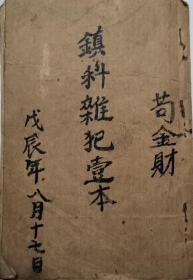 苟金財
鎮科雜犯壹本
戊辰年八月十七日